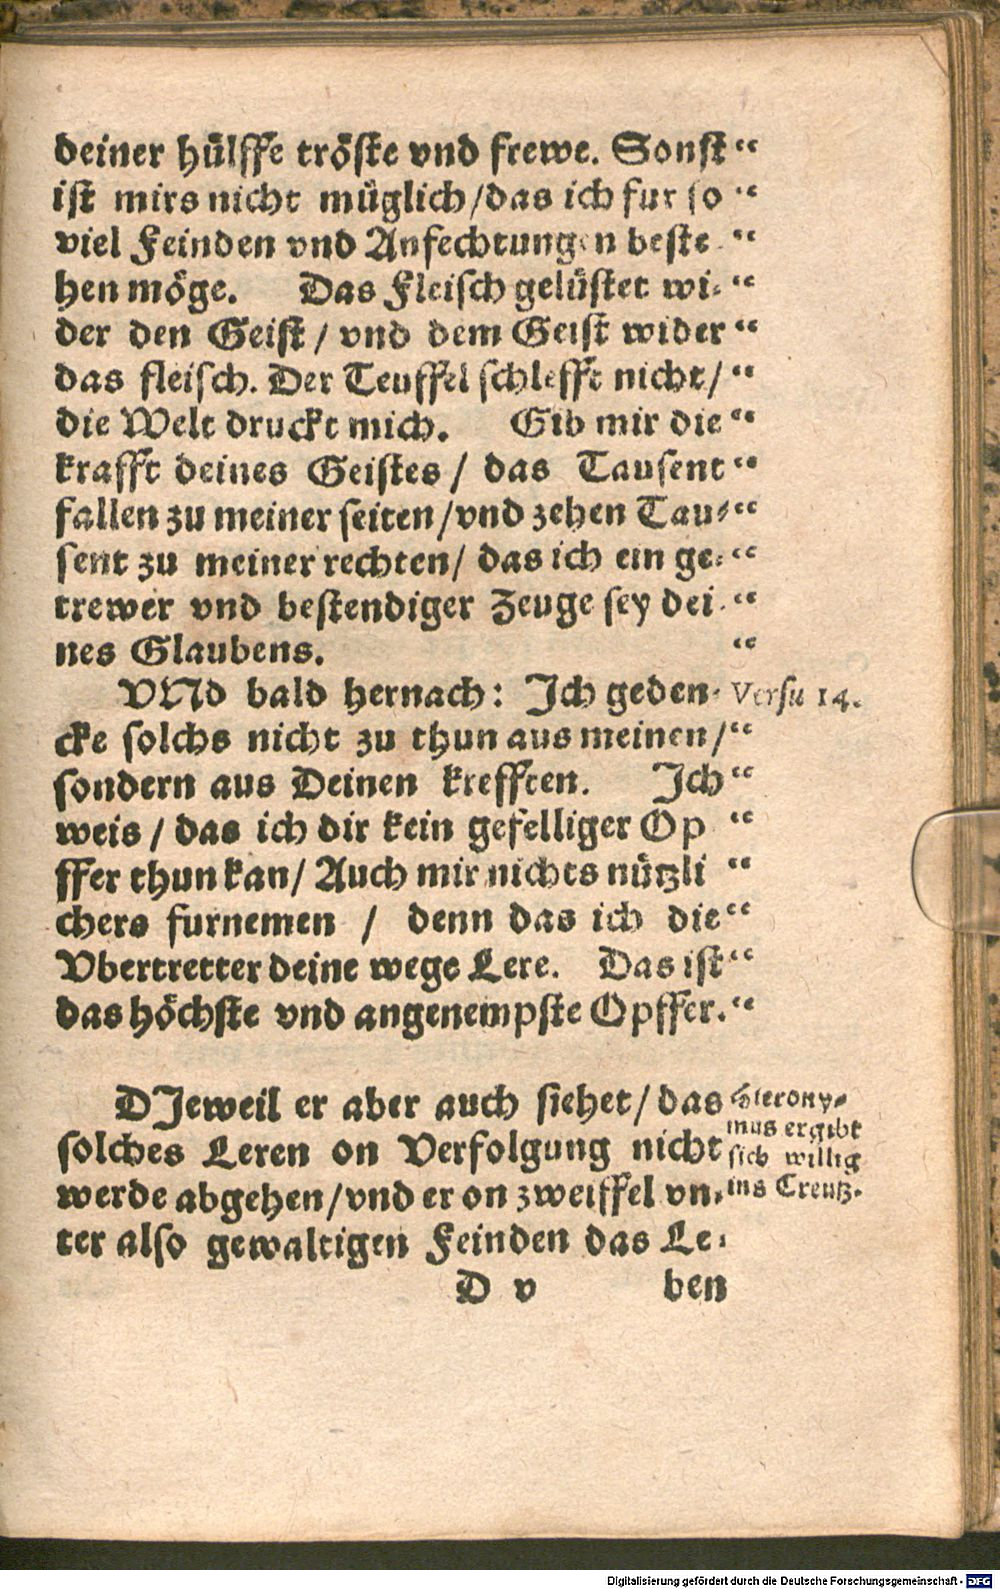 deiner hülffe tröste vnd frewe. Sonst “
ist mirs nicht müglich/das ich fur so “
viel Feinden vnd Anfechtungen beste “
hen möge. Das Fleisch gelüstet wi- “
der den Geist / vnd dem Geist wider “
das fleisch. Der Teuffel schlefft nicht/ “
die Welt druckt mich. Gib mir die “
krafft deines Geistes / das Tausent “
fallen zu meiner seiten/vnd zehen Tau- “
sent zu meiner rechten/ das ich ein ge- “
trewer vnd bestendiger Zeuge sey dei- “
nes Glaubens. “
VNd bald hernach: Ich geden- Versu 14.
cke solchs nicht zu thun aus meinen/ “
sondern aus Deinen krefften. Ich “
weis / das ich dir kein gefelliger Op “
ffer thun kan/ Auch mir nichts nützli “
chers furnemen / denn das ich die “
Vbertretter deine wege Lere. Das ist “
das höchste vnd angenempste Opffer. “
DJeweil er aber auch siehet/ das
solches Leren on Verfolgung nicht
werde abgehen/vnd er on zweiffel vn-
ter also gewaltigen Feinden das Le-
Hierony-
mus ergibt
sich willig
ins Creutz.
D v ben
Digitalisierung gefördert durch die Deutsche Forschungsgemeinschaft - DFG